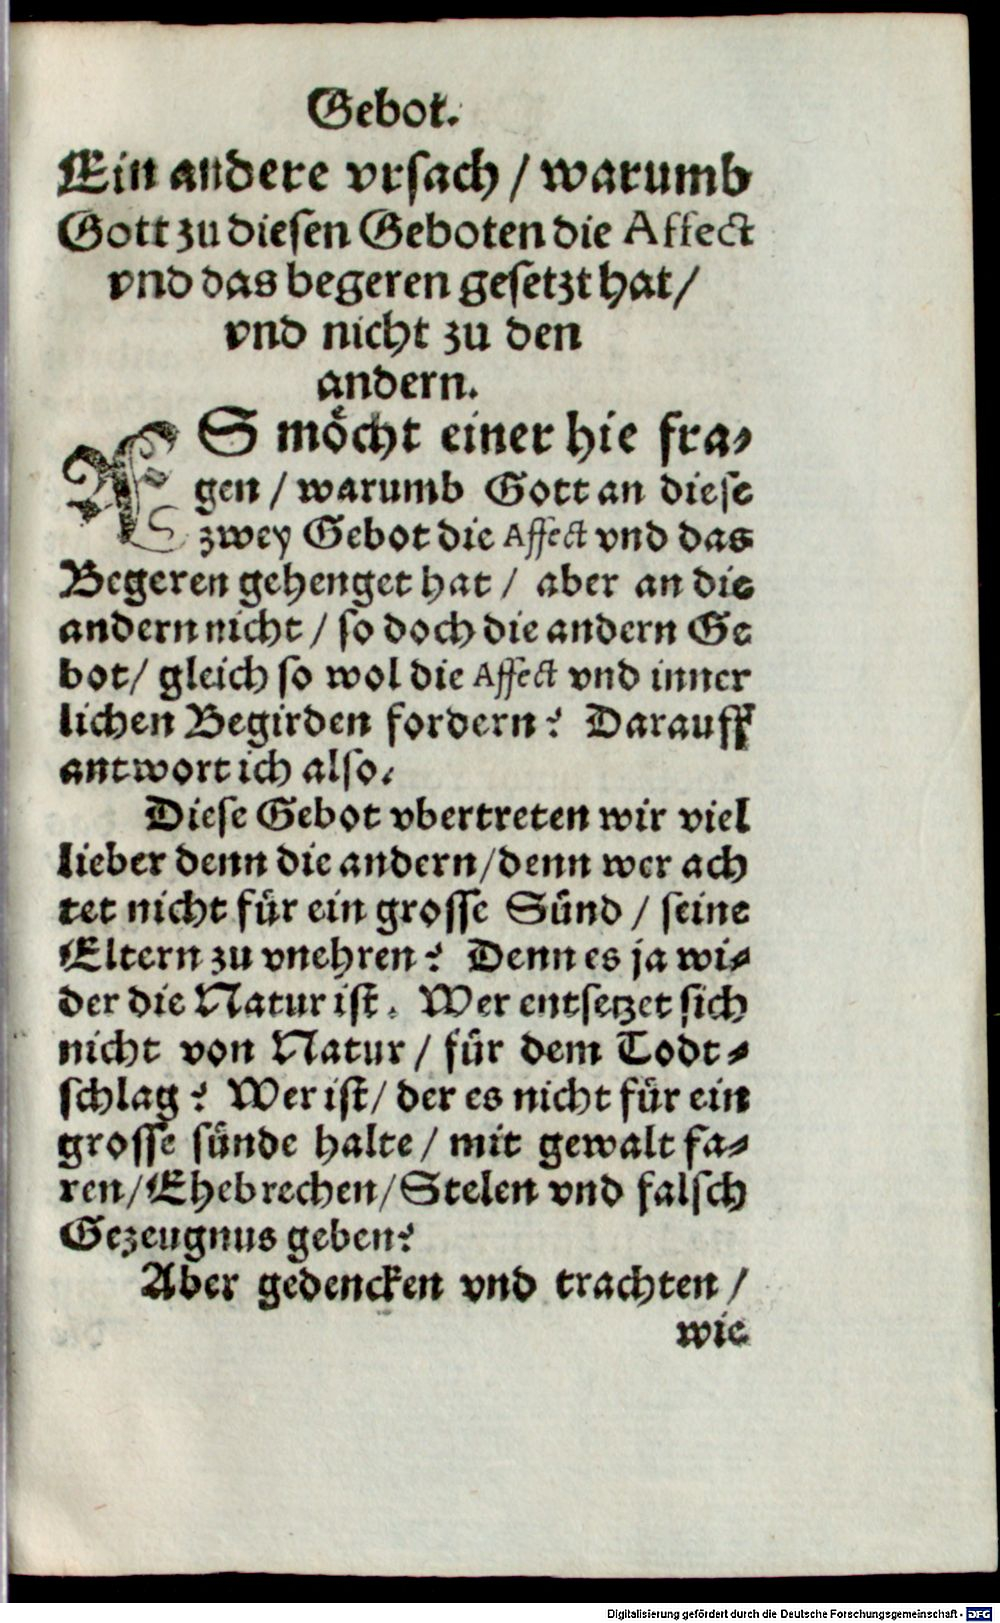 Gebot.
Ein andere vrsach / warumb
Gott zu diesen Geboten die Affect
vnd das begeren gesetzt hat /
vnd nicht zu den
andern.
ES möcht einer hie fra-
gen / warumb Gott an diese
zwey Gebot die Affect vnd das
Begeren gehenget hat / aber an die
andern nicht / so doch die andern Ge
bot / gleich so wol die Affect vnd inner
lichen Begirden fordern? Darauff
antwort ich also.
Diese Gebot vbertreten wir viel
lieber denn die andern / denn wer ach
tet nicht für ein grosse Sünd / seine
Eltern zu vnehren? Denn es ja wi-
der die Natur ist. Wer entsetzet sich
nicht von Natur / für dem Todt-
schlag? Wer ist / der es nicht für ein
grosse sünde halte / mit gewalt fa-
ren / Ehebrechen / Stelen vnd falsch
Gezeugnus geben?
Aber gedencken vnd trachten /
wie
Digitalisierung gefördert durch die Deutsche Forschungsgemeinschaft - DFG